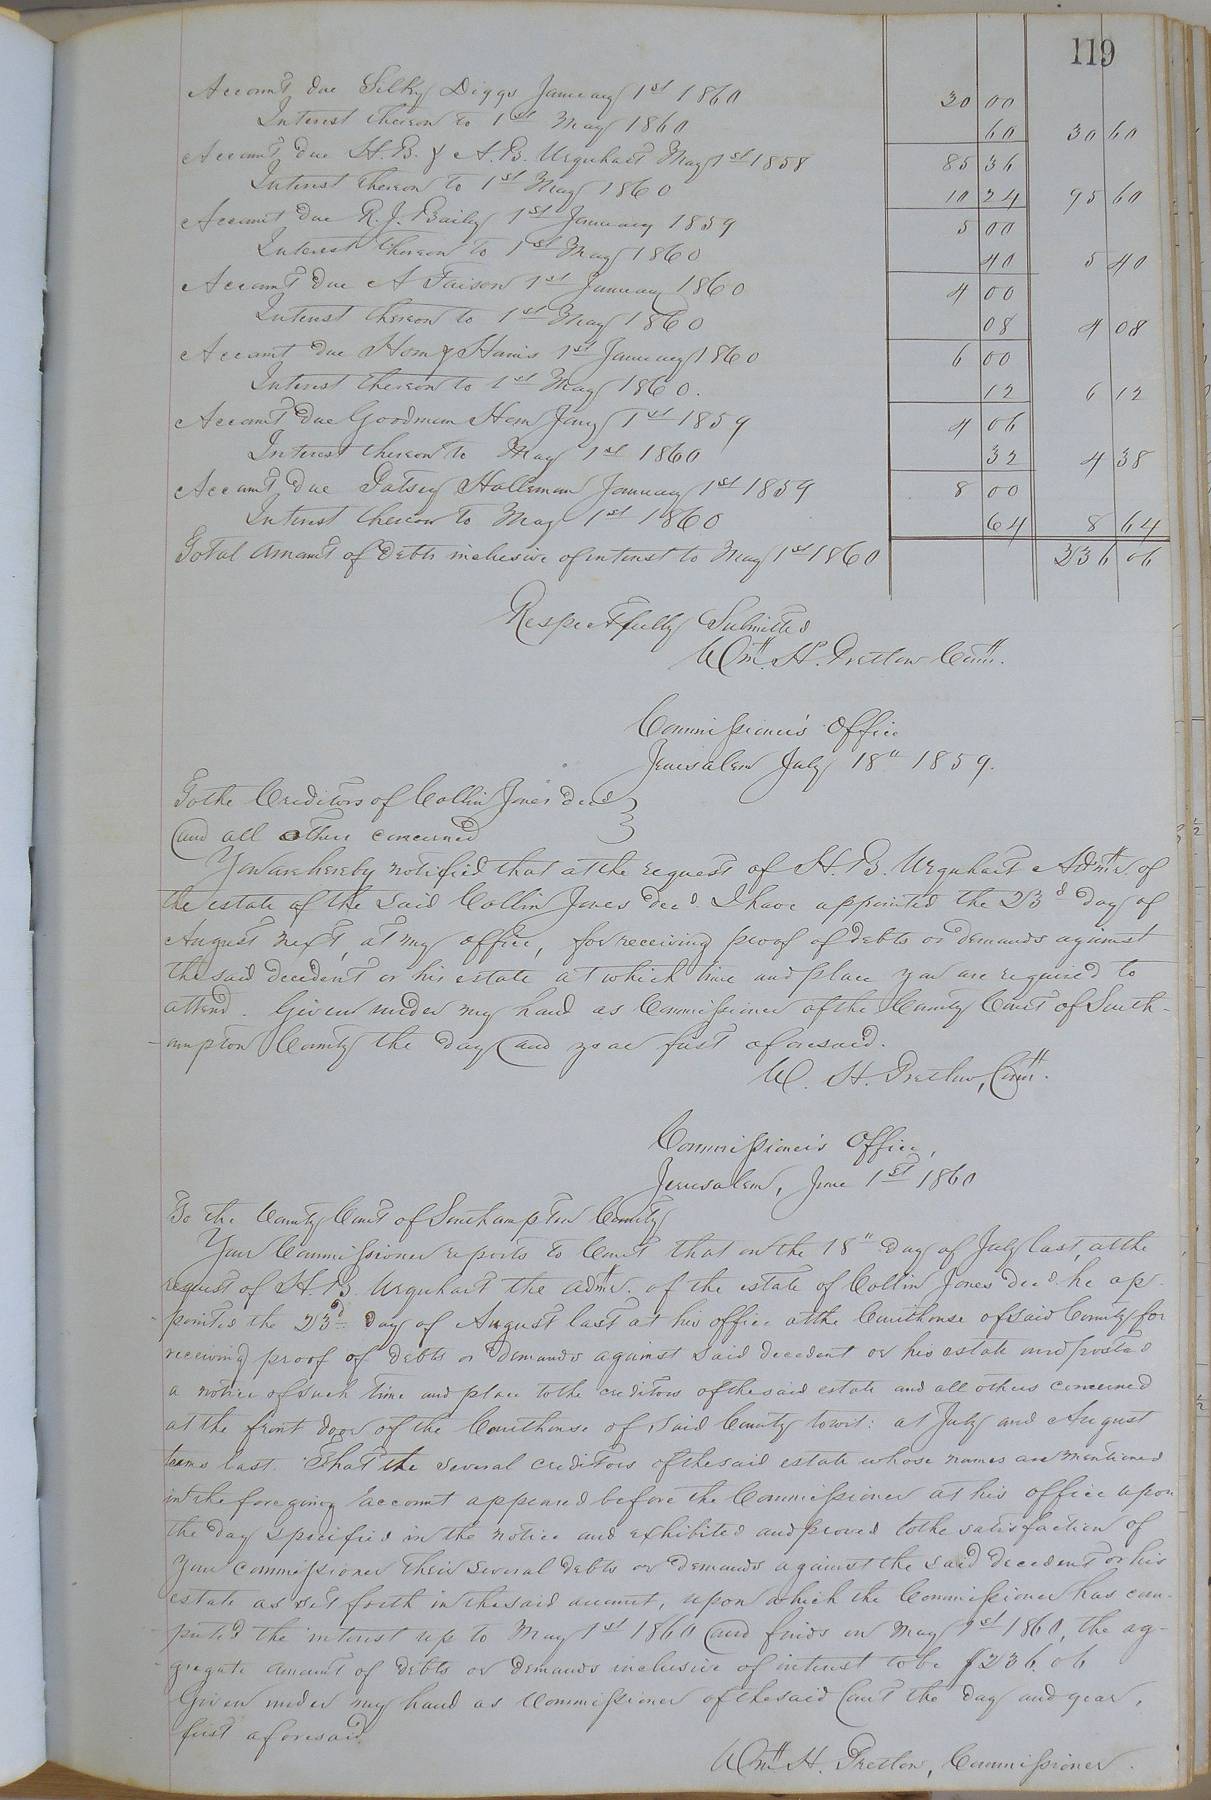 119
Account due Silky Diggs January 1st 1860 30 00
Interest thereon to 1st May 1860 60 30 60
Account due H. B. & A. B. Urquhart May 1st 1858 85 36
Interest thereon to 1st May 1860 10 24 95 60
Account due R. J. Baily 1st January 1859 5 00
Interest thereon to 1st May 1860 40 5 40
Account due A Faison 1st January 1860 4 00
Interest thereon to 1st May 1860 08 4 08
Account due Horn & Harris 1st January 1860 6 00
Interest thereon to 1st May 1860. 12 6 12
Account due Goodman Horn Jany 1st 1859 4 06
Interest thereon to May 1st 1860 32 4 38
Account due Patsey Holleman January 1st 1859 8 00
Interest thereon to May 1st 1860 64 8 64
Total Amount of Debts inclusive of interest to May 1st 1860 236 06
Respectfully Submitted
Wm. H. Pretlow Comr.
Commissioner's Office
Jerusalem July 18" 1859.
To the Creditors of Collin Jones decd
and all others concerned
You are hereby notified that at the request of H. B. Urquhart Admr. of
the estate of the said Collin Jones decd. I have appointed the 23d day of
August next, at my office, for receiving proof of debts or demands against
the said decedent or his estate at which time and place you are required to
attend. Given under my hand as Commissioner of the County Court of South-
ampton County the day and year first aforesaid.
W. H. Pretlow, Comr.
Commissioner's Office,
Jerusalem, June 1st 1860
To the County Court of Southampton County
Your Commissioner reports to Court that on the 18" day of July last, at the
request of H. B. Urquhart the admr. of the estate of Collin Jones decd. he ap-
pointed the 23d day of August last at his office at the Courthouse of said County for
receiving proof of debts or demands against said decedent or his estate and posted
a notice of such time and place to the creditors of the said estate and all others concerned
at the front door of the Courthouse of said County towit: at July and August
terms last. That the several creditors of the said estate whose names are mentioned
in the foregoing account appeared before the Commissioner at his office upon
the day specified in the notice and exhibited and proved to the satisfaction of
your commissioner their several debts or demands against the said decedent or his
estate as set forth in the said account, upon which the Commissioner has com-
puted the interest up to May 1st 1860 and finds on May 1st 1860, the ag-
gregate amount of debts or demands inclusive of interest to be $236.06
Given under my hand as Commissioner of the said Court the day and year,
first aforesaid
Wm H. Pretlow, Commissioner.